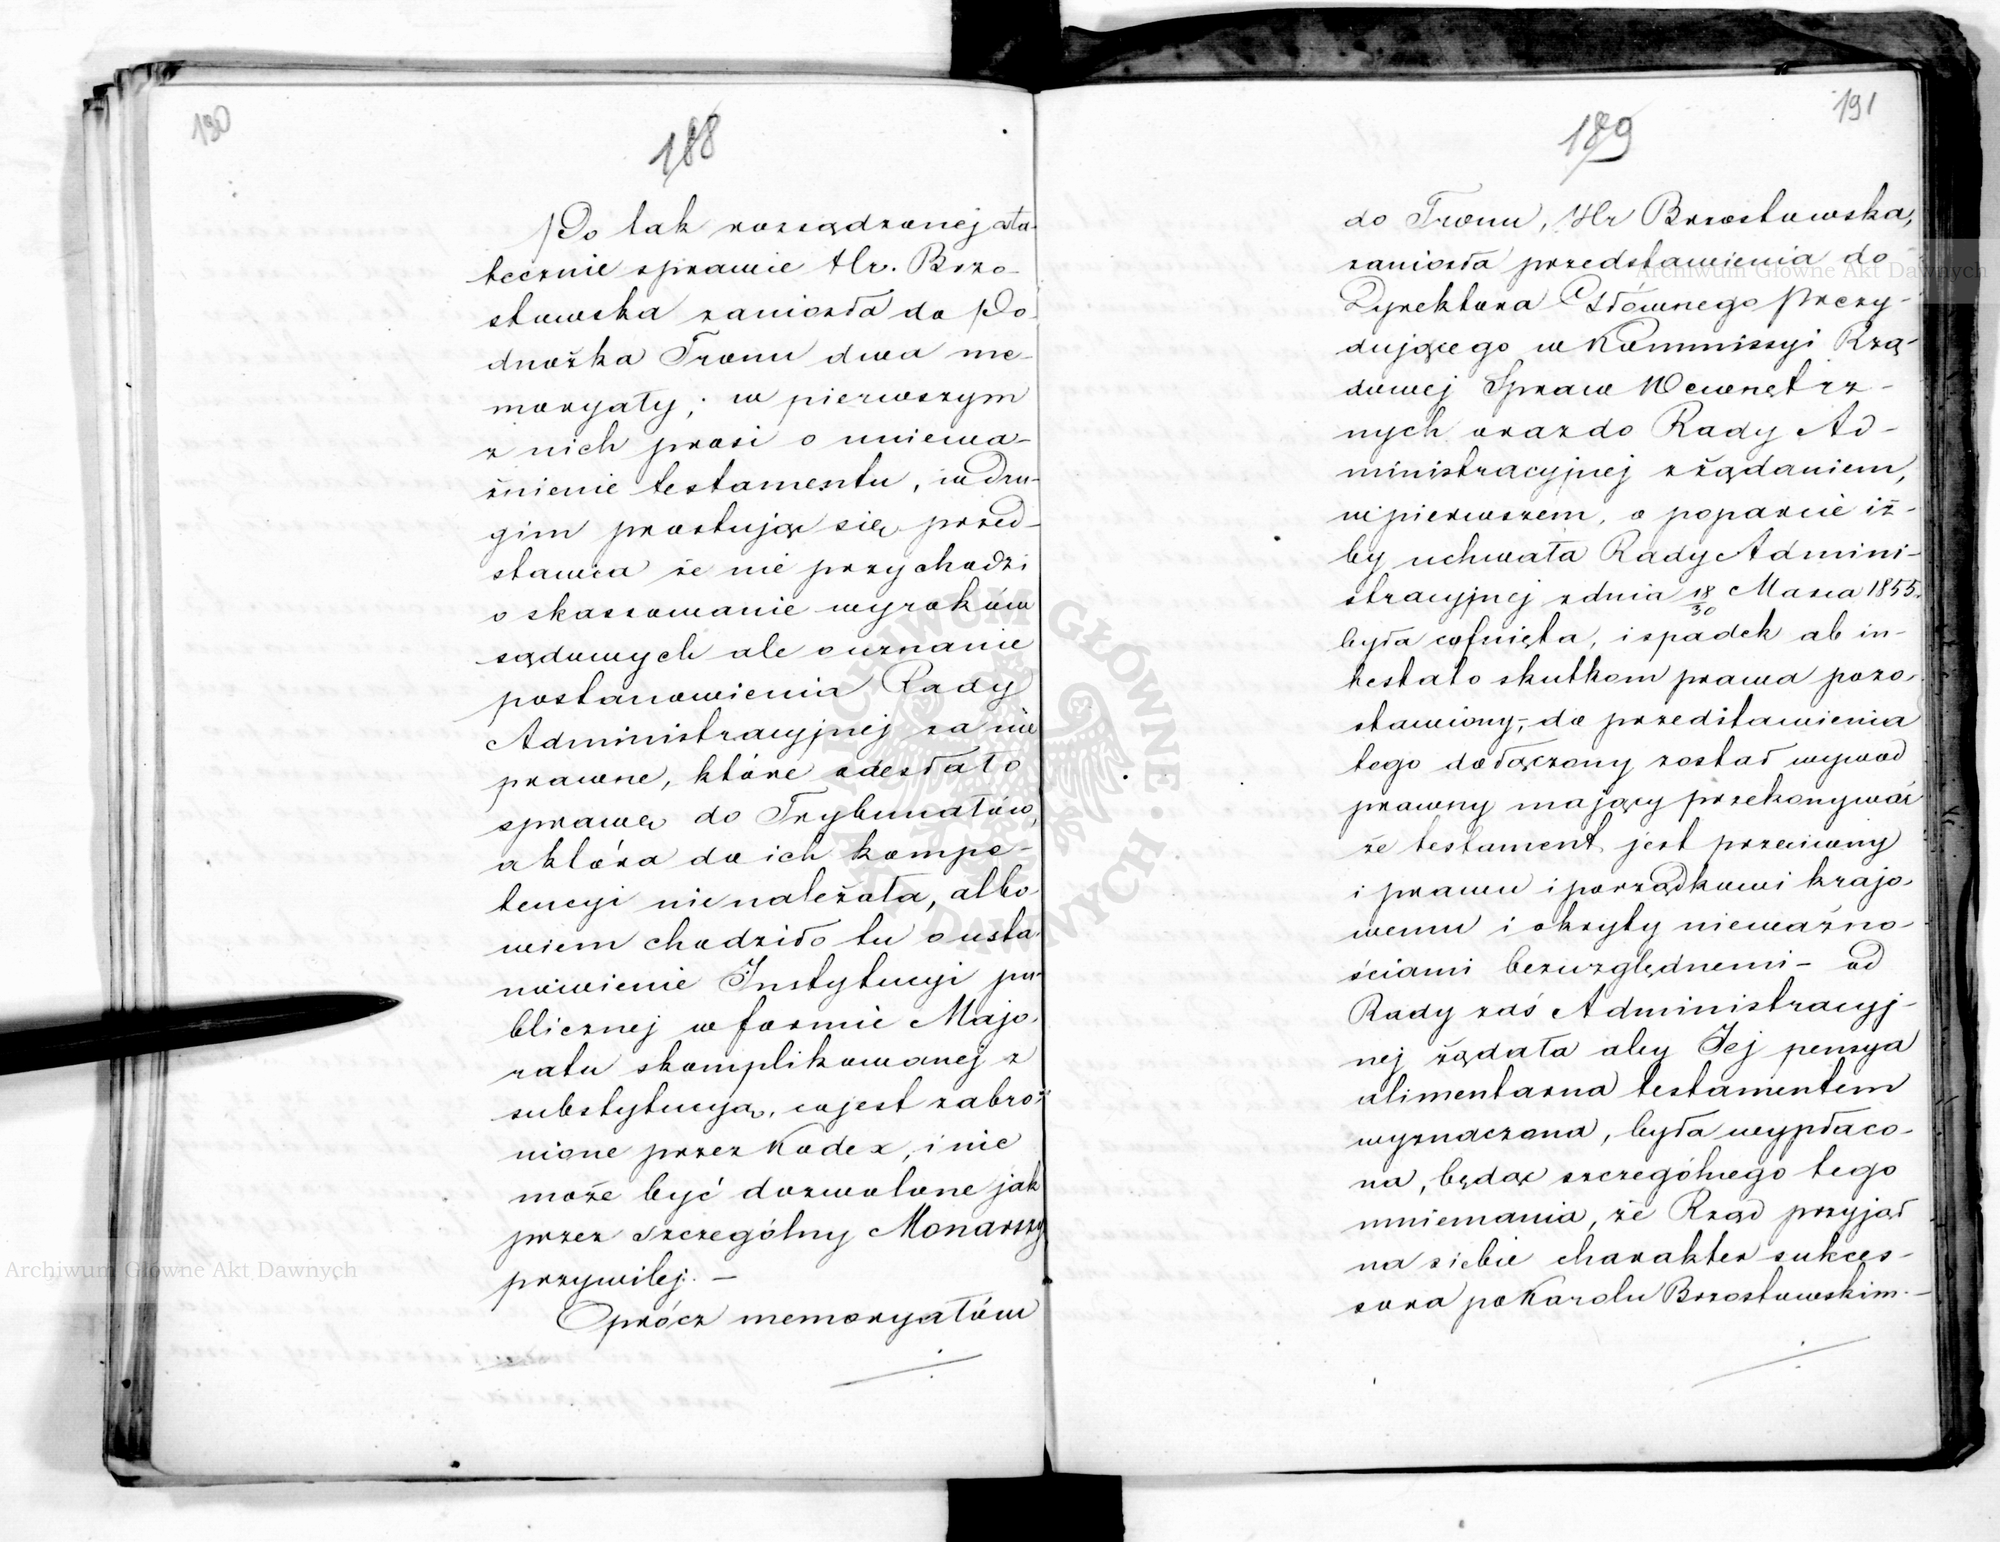 190
188
Po tak rozsądzonej osta-
tecznie sprawie Hr. Brzo-
stowska zaniosła do Po
dnóżka Tronu dwa me-
moryały; w pierwszym
z nich prosi o uniewa-
żnienie testamentu, w dru-
gim prostując się przed-
stawia że nie przychodzi
o skassowanie wyroków
sądowych ale o uznanie
postanowienia Rady
Administracyjnej za nie
prawne, które odesłało
sprawę do Trybunałów,
a która do ich kompe-
tencyi nie należała, albo-
wiem chodziło tu o usta-
nowienie Instytucyi pu-
blicznej w formie Majo-
ratu skomplikowanej z
substytucyą, co jest zabro-
nione przez Kodex, i nie
może być dozwolone jak
przez szczególny Monarszy
przywilej. —
Oprócz memoryałów
191
189
do Tronu, Hr Brzostowska,
zaniosła przedstawienia do
Dyrektora Głównego Prezy-
dującego w Kommissyi Rzą-
dowej Spraw Wewnętrz-
nych oraz do Rady Ad-
ministracyjnej z żądaniem,
w pierwszem, o poparcie iż-
by uchwała Rady Admini-
stracyjnej z dnia 18/30 Marca 1855.
była cofnięta, i spadek ab in-
testato skutkom prawa pozo-
stawiony,- do przedstawienia
tego dołączony został wywod
prawny mający przekonywać
że testament jest przeciwny
i prawu i porządkowi krajo-
wemu i okryty nieważno-
ściami bezwzględnemi - od
Rady zaś Administracyj-
nej żądała aby Jej pensya
alimentarna testamentem
wyznaczona, była wypłaco-
na, będąc szczególnego tego
mniemania, że Rząd przyjął
na siebie charakter sukces-
sora po Karolu Brzostowskim. —
Archiwum Główne Akt Dawnych
Archiwum Główne Akt Dawnych
ARCHIWUM GŁÓWNE AKT DAWNYCH